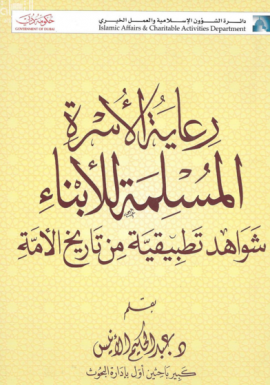 دائرة الشؤون الإسلامية والعمل الخيري
Islamic Affairs & Charitable Activities Department
حكومة دبي
GOVERNMENT OF DUBAI
رعاية الأسرة
المسلمة للأبناء
شواهد تطبيقية من تاريخ الأمة
بقلم
د. عبد الحكيم الأنيس
كبير باحثين أول بإدارة البحوث